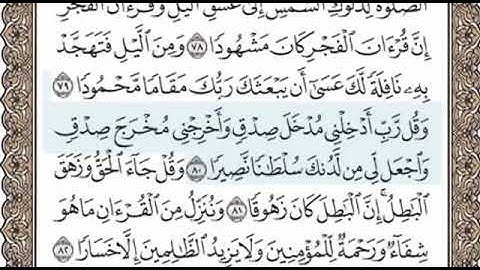 الصَّلَوٰةَ لِدُلُوكِ الشَّمْسِ إِلَىٰ غَسَقِ الَّيْلِ وَقُرْءَانَ الْفَجْرِ
إِنَّ قُرْءَانَ الْفَجْرِ كَانَ مَشْهُودًا ٧٨ وَمِنَ الَّيْلِ فَتَهَجَّدْ
بِهِۦ نَافِلَةً لَّكَ عَسَىٰٓ أَن يَبْعَثَكَ رَبُّكَ مَقَامًا مَّحْمُودًا ٧٩
وَقُل رَّبِّ أَدْخِلْنِى مُدْخَلَ صِدْقٍ وَأَخْرِجْنِى مُخْرَجَ صِدْقٍ
وَاجْعَل لِّى مِن لَّدُنكَ سُلْطَٰنًا نَّصِيرًا ٨٠ وَقُلْ جَآءَ الْحَقُّ وَزَهَقَ
الْبَٰطِلُ ۚ إِنَّ الْبَٰطِلَ كَانَ زَهُوقًا ٨١ وَنُنَزِّلُ مِنَ الْقُرْءَانِ مَا هُوَ
شِفَآءٌ وَرَحْمَةٌ لِّلْمُؤْمِنِينَ وَلَا يَزِيدُ الظَّٰلِمِينَ إِلَّا خَسَارًا ٨٢